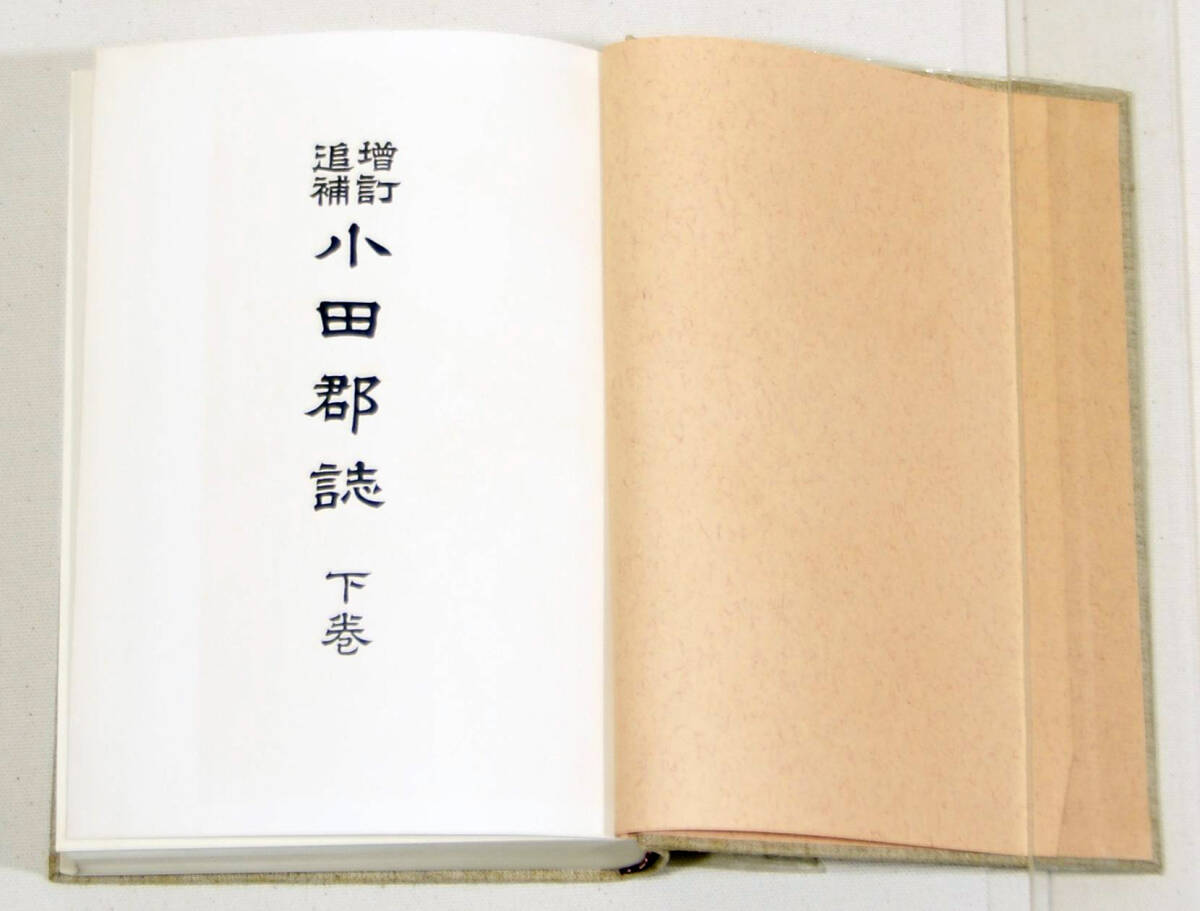 増訂
追補
小田郡誌
下巻